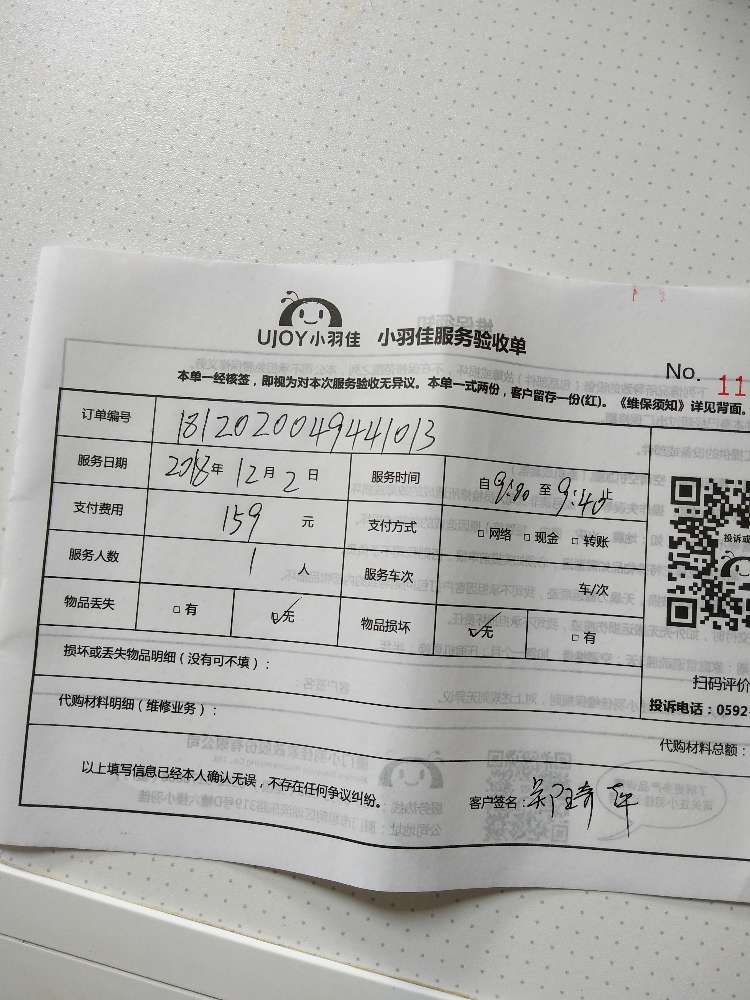 UJOY小羽佳 小羽佳服务验收单
No. 11
本单一经核签，即视为对本次服务验收无异议。本单一式两份，客户留存一份(红)。《维保须知》详见背面。
订单编号 1812020049441013
服务日期 2018年 12月 2日 服务时间 自9:00至9:40止
支付费用 159 元 支付方式 □网络 □现金 □转账
服务人数 1 人 服务车次 车/次
物品丢失 □有 ☑无 物品损坏 ☑无 □有
损坏或丢失物品明细（没有可不填）：
扫码评价
投诉电话：0592-
代购材料明细（维修业务）：
代购材料总额：
以上填写信息已经本人确认无误，不存在任何争议纠纷。 客户签名：